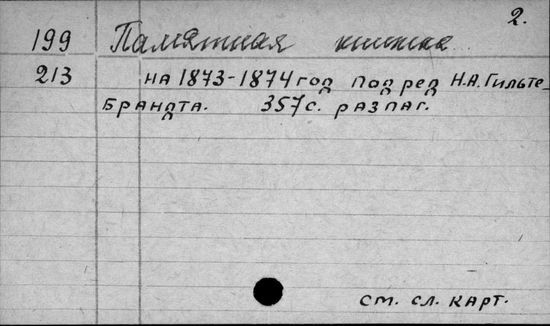 2.
199 Памятная книжка
213 на 1873-1874 год под ред Н.А. Гильте-
Брандта. 357 с. разпаг.
см. сл. карт.